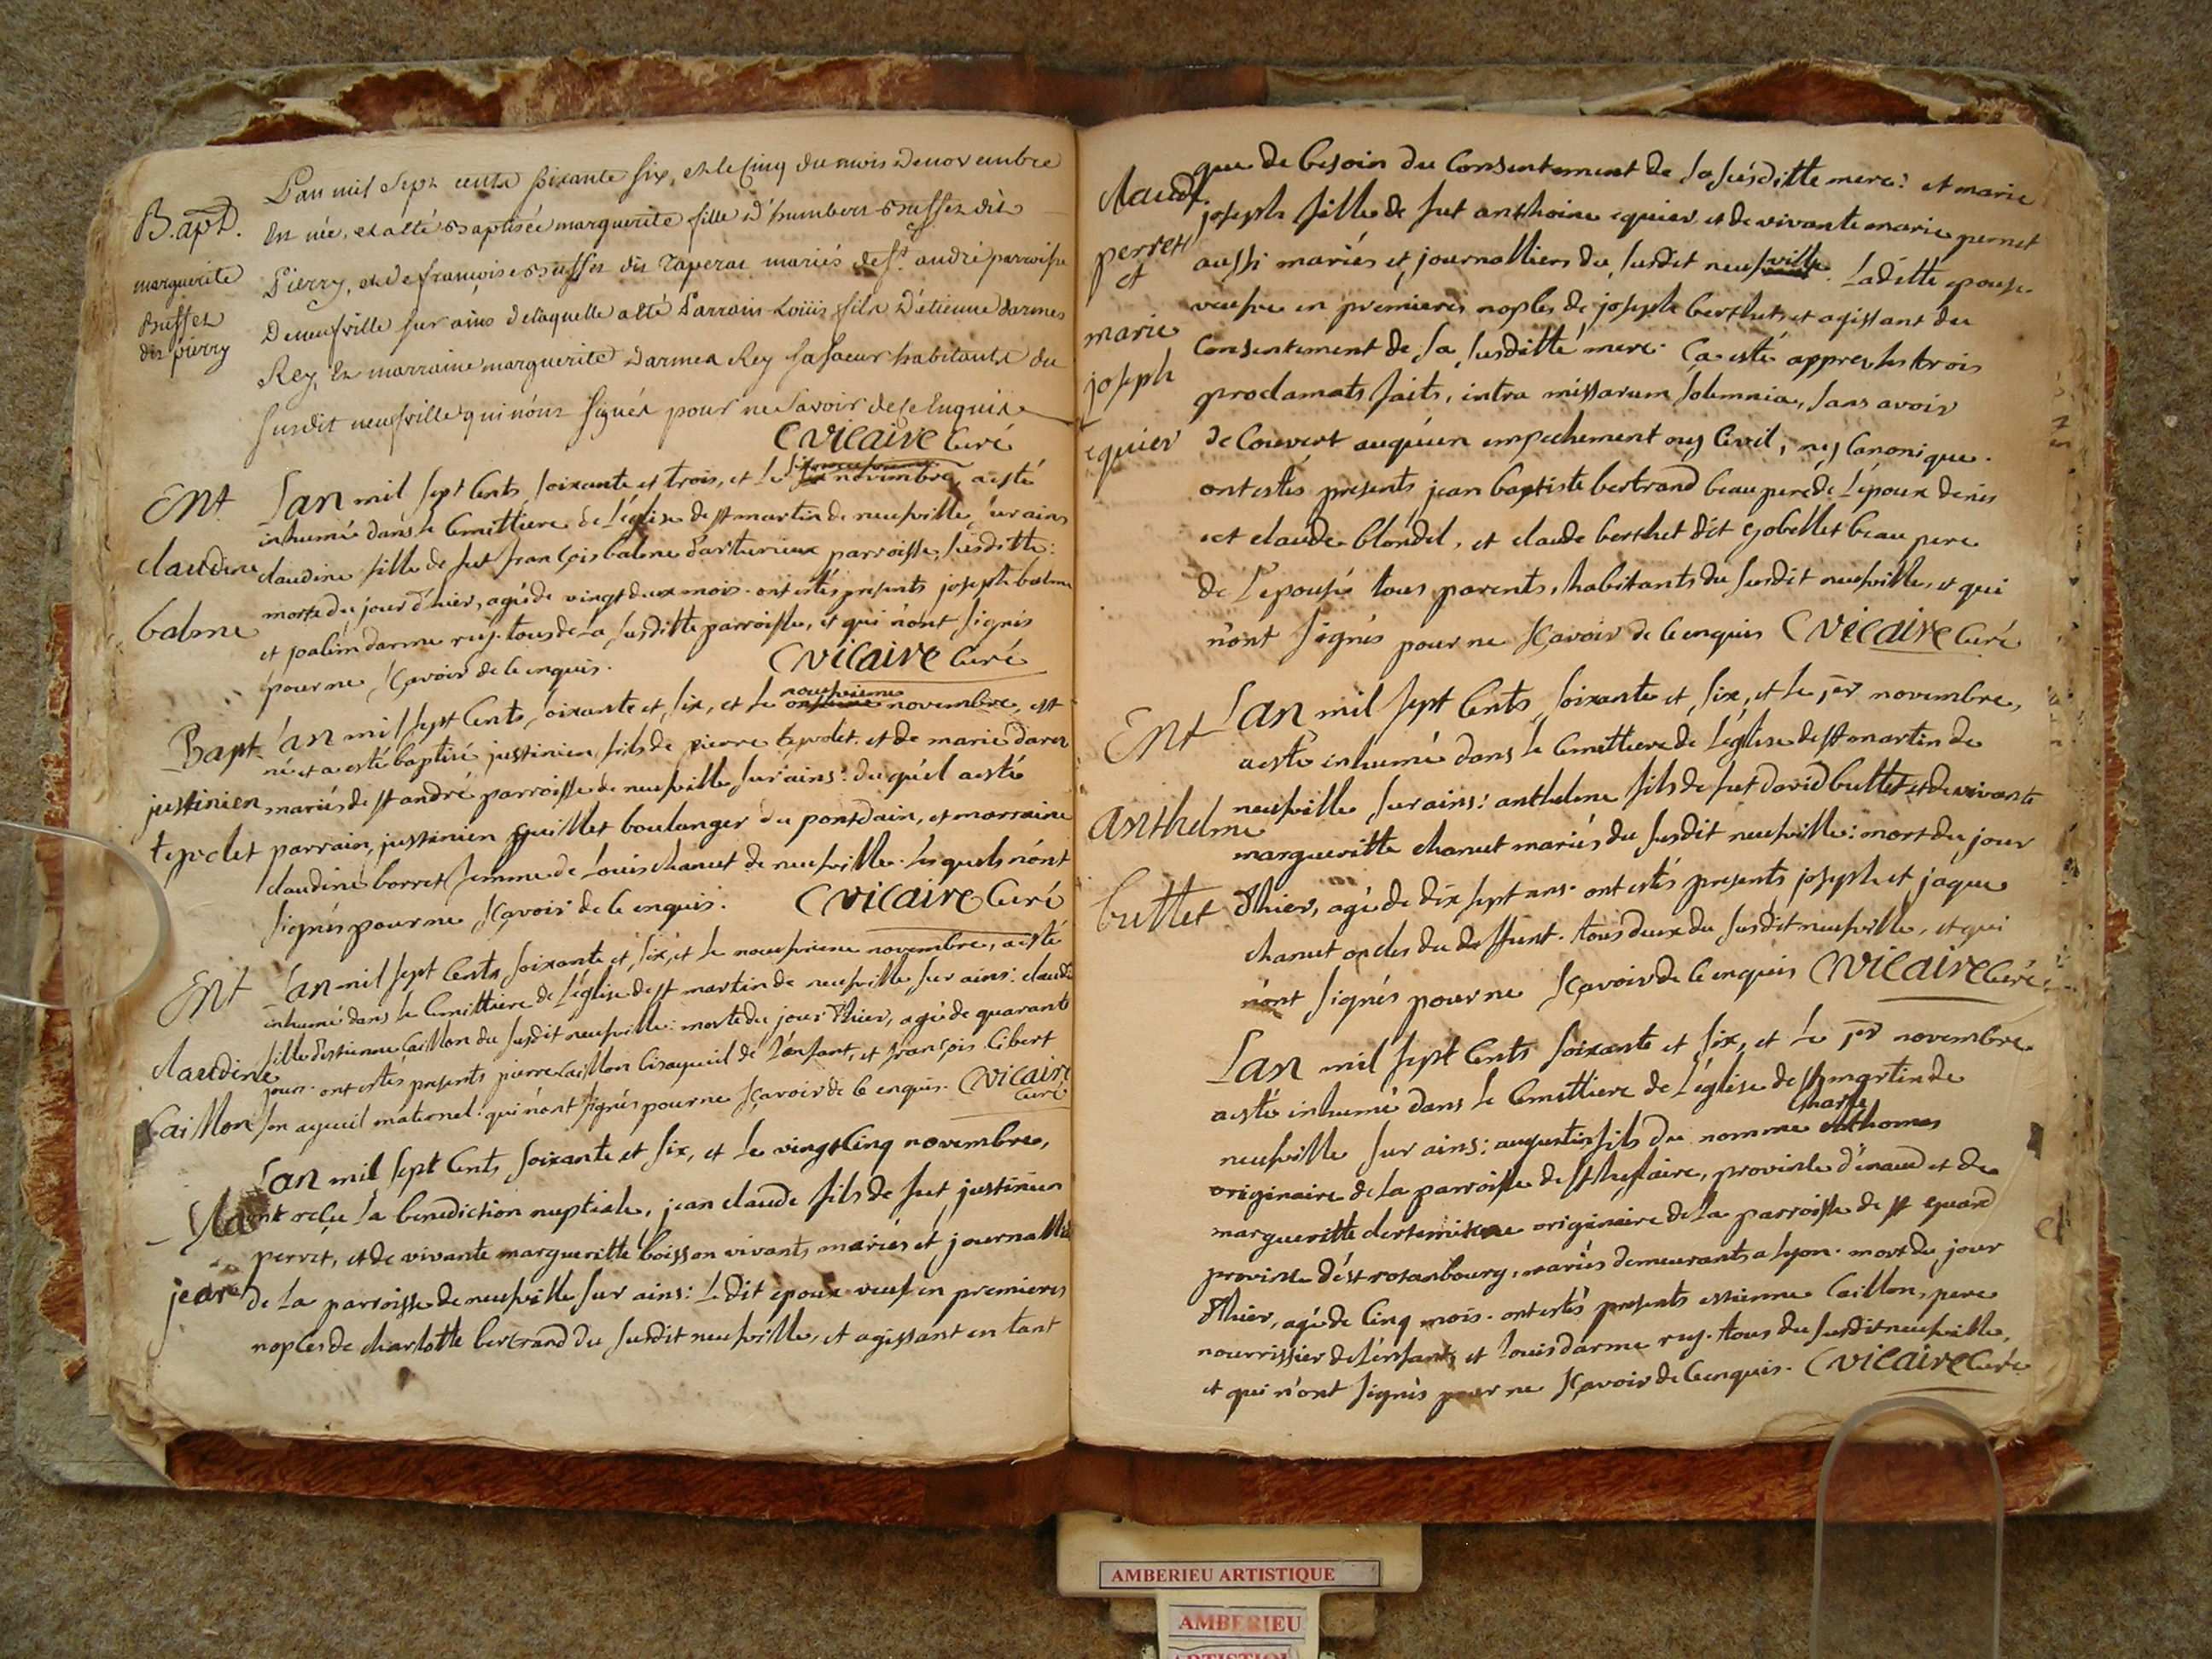 Bapt.
marguerite
Buffet
dit pierry
L'an mil sept cents soixante six, et le cinq du mois de novembre
est née, et a été baptisée marguerite fille d'humbert Buffet dit
Pierry, et de françoise Buffet dit mariés de st. andré parroisse
de neufville sur ains de laquelle a été Parrain Loüis fils d'étienne Darmes
Rey, et marraine marguerite Darmes Rey sa soeur habitants du
susdit neufville qui n'ont signés pour ne savoir de ce Enquis
Vicaire Curé
Ent
claudine
balme
L'an mil sept cents soixante et trois, et le novembre, a esté
inhumé dans le cemettiere de l'église de st martin de neufville surains
claudine fille de fut françois balme parroisse susditte:
morte du jour d'hier, agé de vingt deux mois. ont estés presents joseph balme
et darme rey. tous de la susditte parroisse, et qui n'ont signés
pour ne sçavoir de ce enquis. Vicaire Curé
Bapt
justinien
L'an mil sept cents soixante et six, et le neufvieme novembre, est
né et a esté baptisé justinien fils de pierre et de marie
mariés de st andré parroisse de neufville sur ains: duquel a esté
parrain, justinien guillet boulanger du pontdain, et marraine
claudine borret femme de louis chanet de neufville. lesquels n'ont
signés pour ne sçavoir de ce enquis. Vicaire Curé
Ent
claudine
Caillon
L'an mil sept cents soixante et six, et le neufvieme novembre, a esté
inhumé dans le cemettiere de l'église de st martin de neufville sur ains: claudine
fille d'estienne Caillon du susdit neufville: morte du jour d'hier, agé de quarante
jours. ont estés presents pierre Caillon bisayeuil de l'enfant, et françois libert
son ayeuil maternel. qui n'ont signés pour ne sçavoir de ce enquis. Vicaire
Curé
jean
L'an mil sept cents soixante et six, et le vingt cinq novembre,
ont reçu la benediction nuptiale, jean claude fils de fut justinien
perret, et de vivante margueritte boisson vivants mariés et journalliers
de la parroisse de neufville sur ains: ledit epoux veuf en premieres
nopces de charlotte bertrand du susdit neufville, et agissant en tant
claude
perret
et
marie
joseph
equier
que de besoin du consentement de sa susditte mere: et marie
joseph fille de fut anthoine equier et de vivante marie pernet
aussi mariés et journalliers du susdit neufville. Laditte epouse
veufve en premieres nopces de joseph berthet, et agissant du
consentement de sa susditte mere. Ça esté appres les trois
proclamats faits, intra missarum solemnia, sans avoir
de couvert auquun empechement ny civil, ny canonique.
ont estés presents jean baptiste bertrand beau pere de l'époux denis
et claude blondel, et claude berthet dit gobellet beau pere
de l'epousé tous parents, habitants du susdit neufville, et qui
n'ont signés pour ne sçavoir de ce enquis Vicaire Curé
Ent
anthelme
buttet
L'an mil sept cents soixante et six, et le 1er novembre,
a esté inhumé dans le cemettiere de l'église de st martin de
neufville sur ains: anthelme fils de fut david buttet et de vivante
margueritte chanut mariés du susdit neufville: mort du jour
d'hier, agé de dix sept ans. ont estés presents joseph et jaque
chanut oncles du deffunt. tous deux du susdit neufville, et qui
n'ont signés pour ne sçavoir de ce enquis Vicaire Curé
L'an mil sept cents soixante et six, et le 1er novembre
a esté inhumé dans le cemettiere de l'église de st martin de
neufville sur ains: augustin fils du nomme charle thomas
originaire de la parroisse de st province et de
margueritte originaire de la parroisse de st
province mariés demeurants a lyon. mort du jour
d'hier, agé de cinq mois. ont estés presents estienne Caillon, pere
nourrissier de l'enfant, et louis darme rey. tous du susdit neufville,
et qui n'ont signés pour ne sçavoir de ce enquis. Vicaire Curé
AMBERIEU ARTISTIQUE
AMBERIEU
ARTISTIQUE